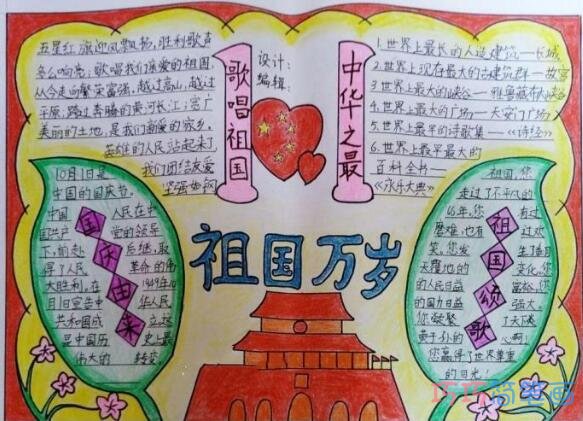 五星红旗迎风飘扬,胜利歌声
多么响亮;歌唱我们亲爱的祖国,
从今走向繁荣富强,越过高山,越过
平原,跨过奔腾的黄河长江;宽广
美丽的土地,是我们亲爱的家乡。
英雄的人民站起来了,
我们团结友爱
坚强如钢
歌唱祖国
设计:
编辑:
中华之最
1.世界上最长的人造建筑——长城
2.世界上现存最大的古建筑群——故宫
3.世界上最大的峡谷——雅鲁藏布大峡谷
4.世界上最大的广场——天安门广场
5.世界上最早的诗歌集——《诗经》
6.世界上最早最大的
百科全书——
《永乐大典》
祖国万岁
国庆由来
10月1日是
中国的国庆节,
中国人民在中
国共产党的领导
下,前赴后继,取
得了人民革命的伟
大胜利,在1949年10
月1日宣告中华人民
共和国成立,这
是中国历史上最
伟大的转变。
祖国颂歌
祖国,您
走过了不平凡的
65年,您有过
磨难,也有过欢
笑。您发生了翻
天覆地的变化,您
的人民日益富裕,您
的国力日益强大。
您凝聚了天下炎
黄子孙的心啊!
您赢得了世界尊重
的目光!
巧巧简笔画